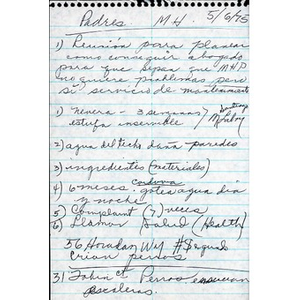 Padres M H. 5/6/95
1) Reunión para planear
como conseguir abogado
para que sepa que WHD
no quiere problemas pero
si servicio de mantenimiento
1) Nevera - 3 semanas
estufa ensemble
2) agua del techo daña paredes
3) ingredientes (materiales)
4) 6 meses gotea agua dia
y noche
5) Complaint (7) veces
6) Llamar Salud (Health)
56 Horadan Wy #Segundo
crian perros
31 Fabin Ct Perros ensucian
escaleras.